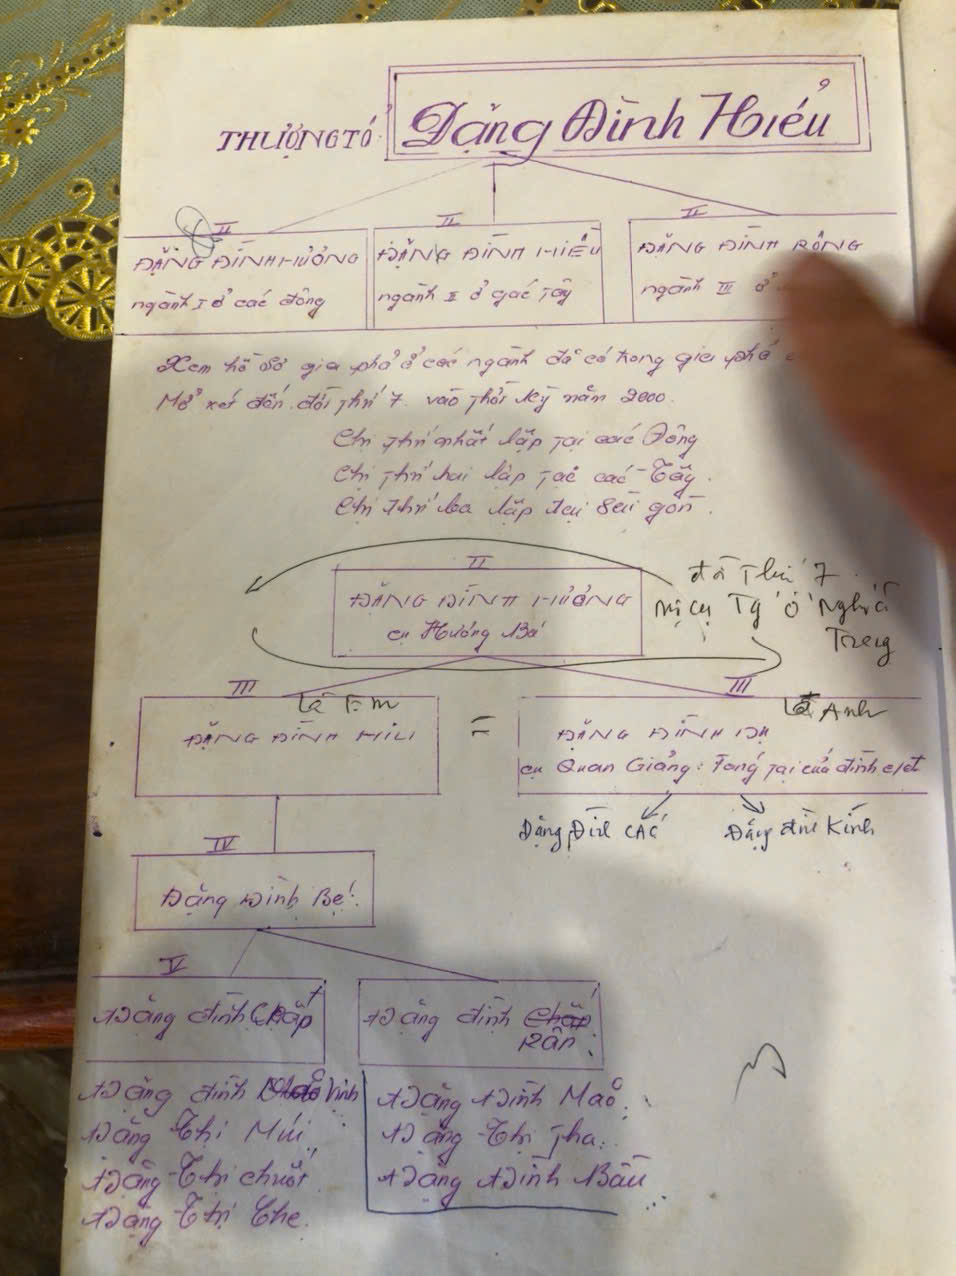 THƯỢNG TỔ Đặng Đình Hiểu
II
ĐẶNG ĐÌNH HƯỞNG
ngành I ở các đông
II
ĐẶNG ĐÌNH HIỀU
ngành II ở các Tây
II
ĐẶNG ĐÌNH RỒNG
ngành III ở
Xem hồ sơ gia phả ở các ngành đã có trong gia phả
Mở xét đến đời thứ 7 vào thời kỳ năm 2000.
Chi thứ nhất lập tại các Đông
Chi thứ hai lập tại các Tây.
Chi thứ ba lập tại Sài gòn.
II
ĐẶNG ĐÌNH HƯỞNG
cụ Hương Bá
đời Thứ 7
Tý ở Nghĩa
Trung
III
là Em
ĐẶNG ĐÌNH HIU
=
III
là Anh
ĐẶNG ĐÌNH DỊ
cụ Quan Giảng: Tống tại của đình
Đặng Đình CÁC
Đặng đình Kính
IV
Đặng Đình Bẹ
V
Đặng đình Chắt
Đặng đình Chắp
Rần
Đặng đình Vinh
Đặng Thị Mùi
Đặng Thị chuốt
Đặng Thị Che.
Đặng Đình Mao
Đặng Thị Tha
Đặng Đình Bầu